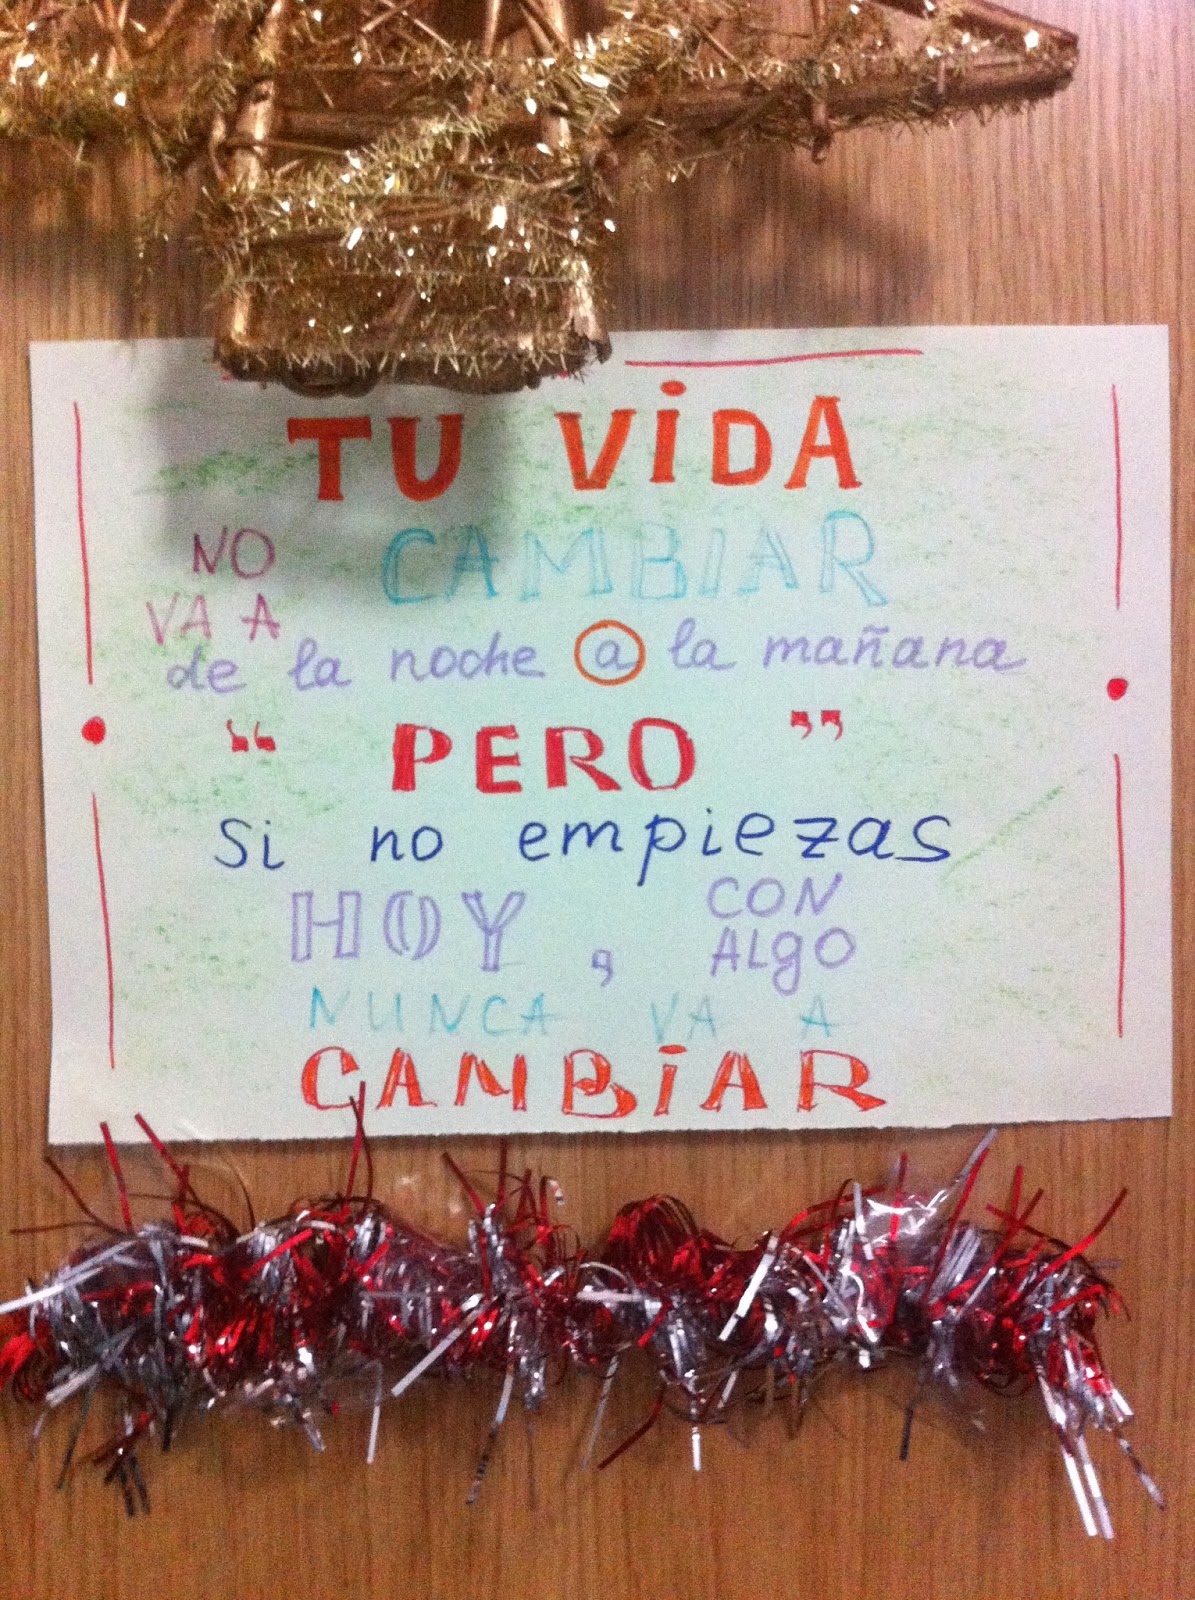 TU ViDA
NO CAMBIAR
VA A
de la noche a la mañana
“ PERO ”
Si no empiezas
HOY, CON
ALgO
NUNCA VA A
CAMBiAR